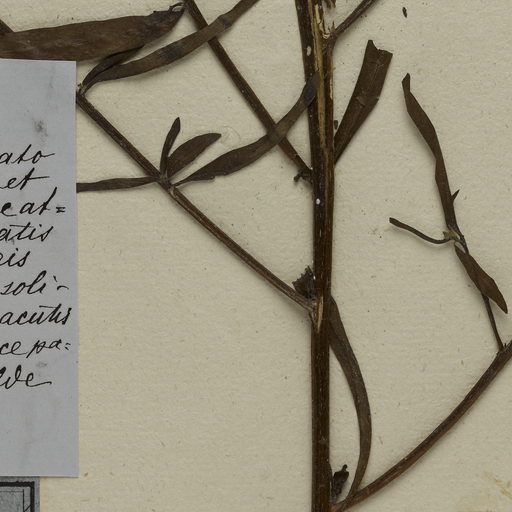 ato
et
cat=
atis
eis
soli-
acutis
ce pa=